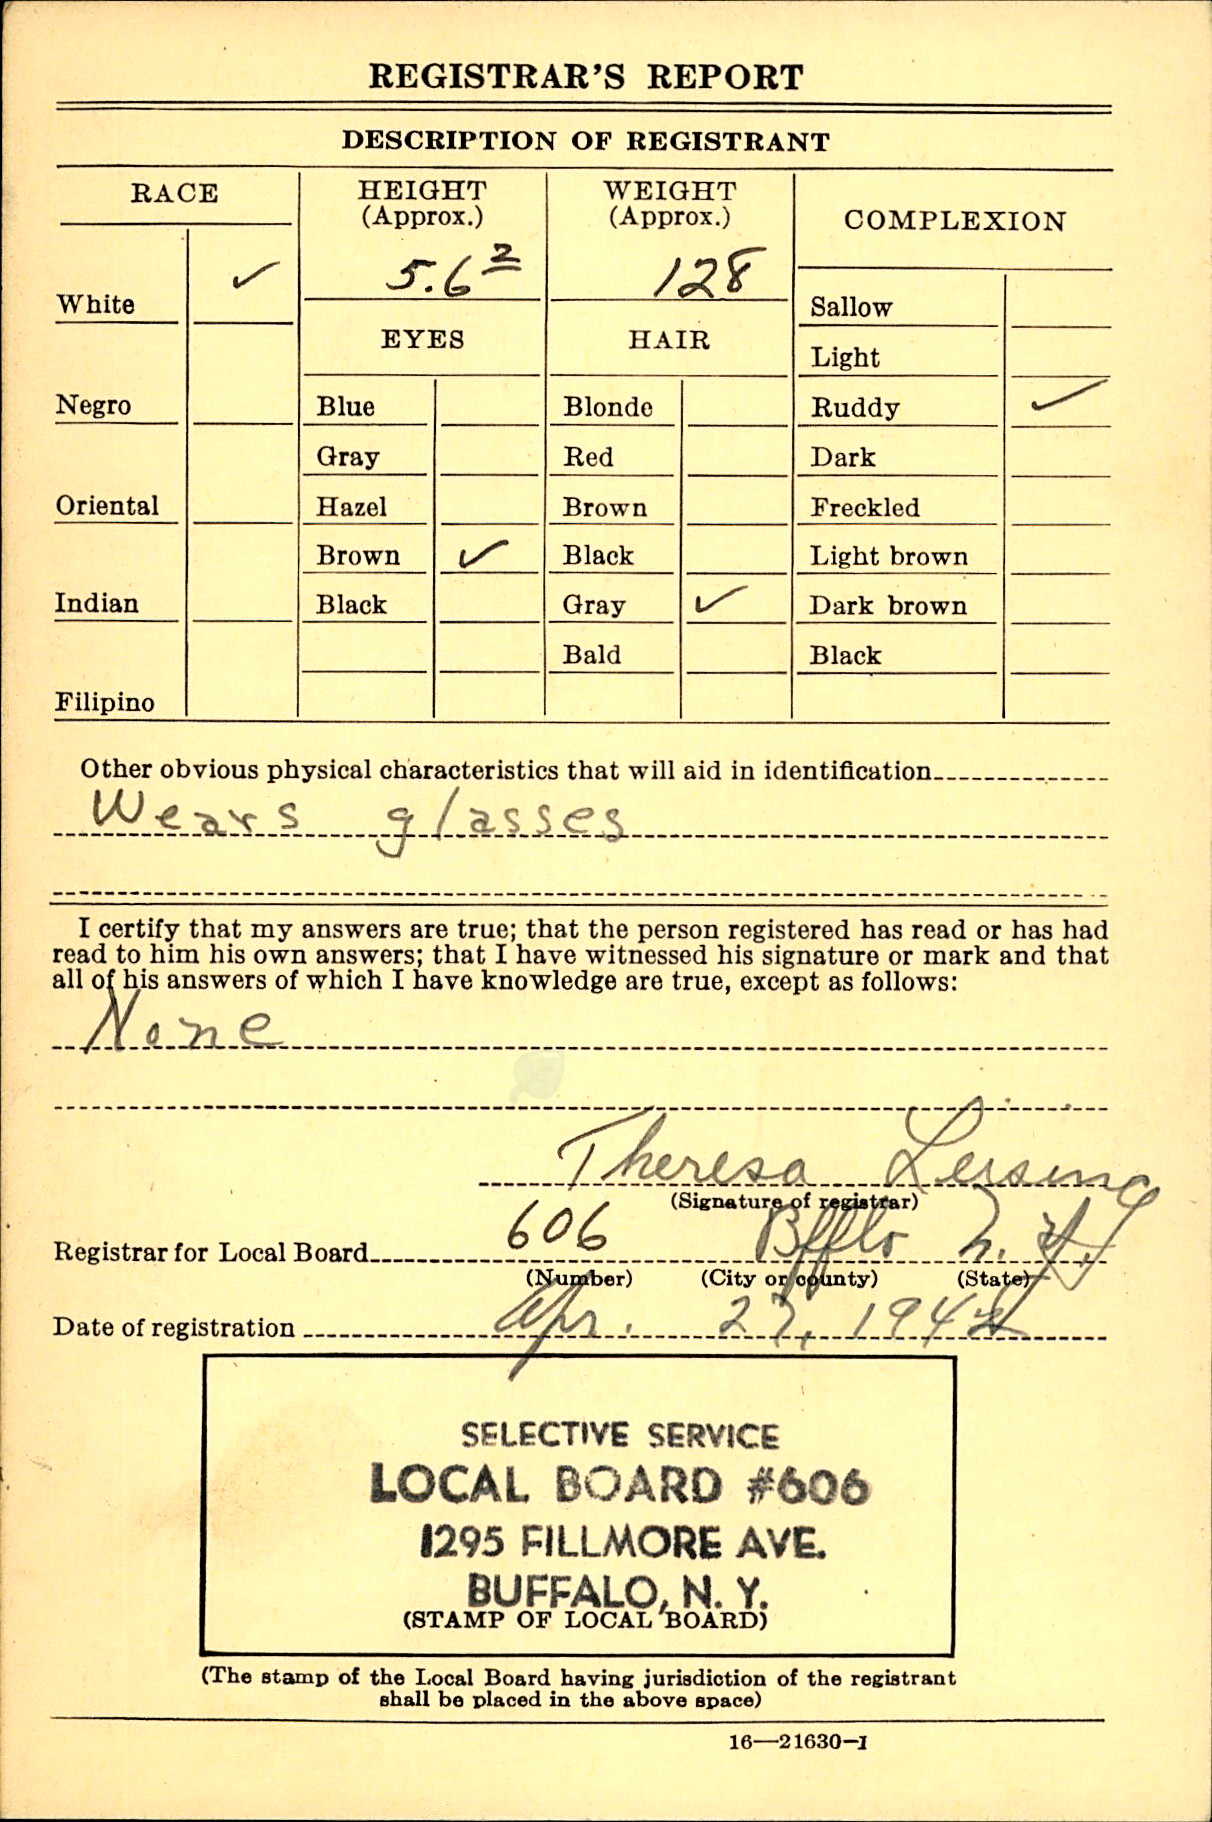 REGISTRAR'S REPORT
DESCRIPTION OF REGISTRANT
RACE
HEIGHT
(Approx.)
WEIGHT
(Approx.)
COMPLEXION
5.6 2
128
White ✓
Sallow
EYES
HAIR
Light
Negro
Blue
Blonde
Ruddy ✓
Gray
Red
Dark
Oriental
Hazel
Brown
Freckled
Brown ✓
Black
Light brown
Indian
Black
Gray ✓
Dark brown
Bald
Black
Filipino
Other obvious physical characteristics that will aid in identification
Wears glasses
I certify that my answers are true; that the person registered has read or has had
read to him his own answers; that I have witnessed his signature or mark and that
all of his answers of which I have knowledge are true, except as follows:
None
Theresa
(Signature of registrar)
Registrar for Local Board 606 Bfflo N. Y.
(Number) (City or county) (State)
Date of registration Apr. 27, 1942
SELECTIVE SERVICE
LOCAL BOARD #606
1295 FILLMORE AVE.
BUFFALO, N. Y.
(STAMP OF LOCAL BOARD)
(The stamp of the Local Board having jurisdiction of the registrant
shall be placed in the above space)
16—21630-1